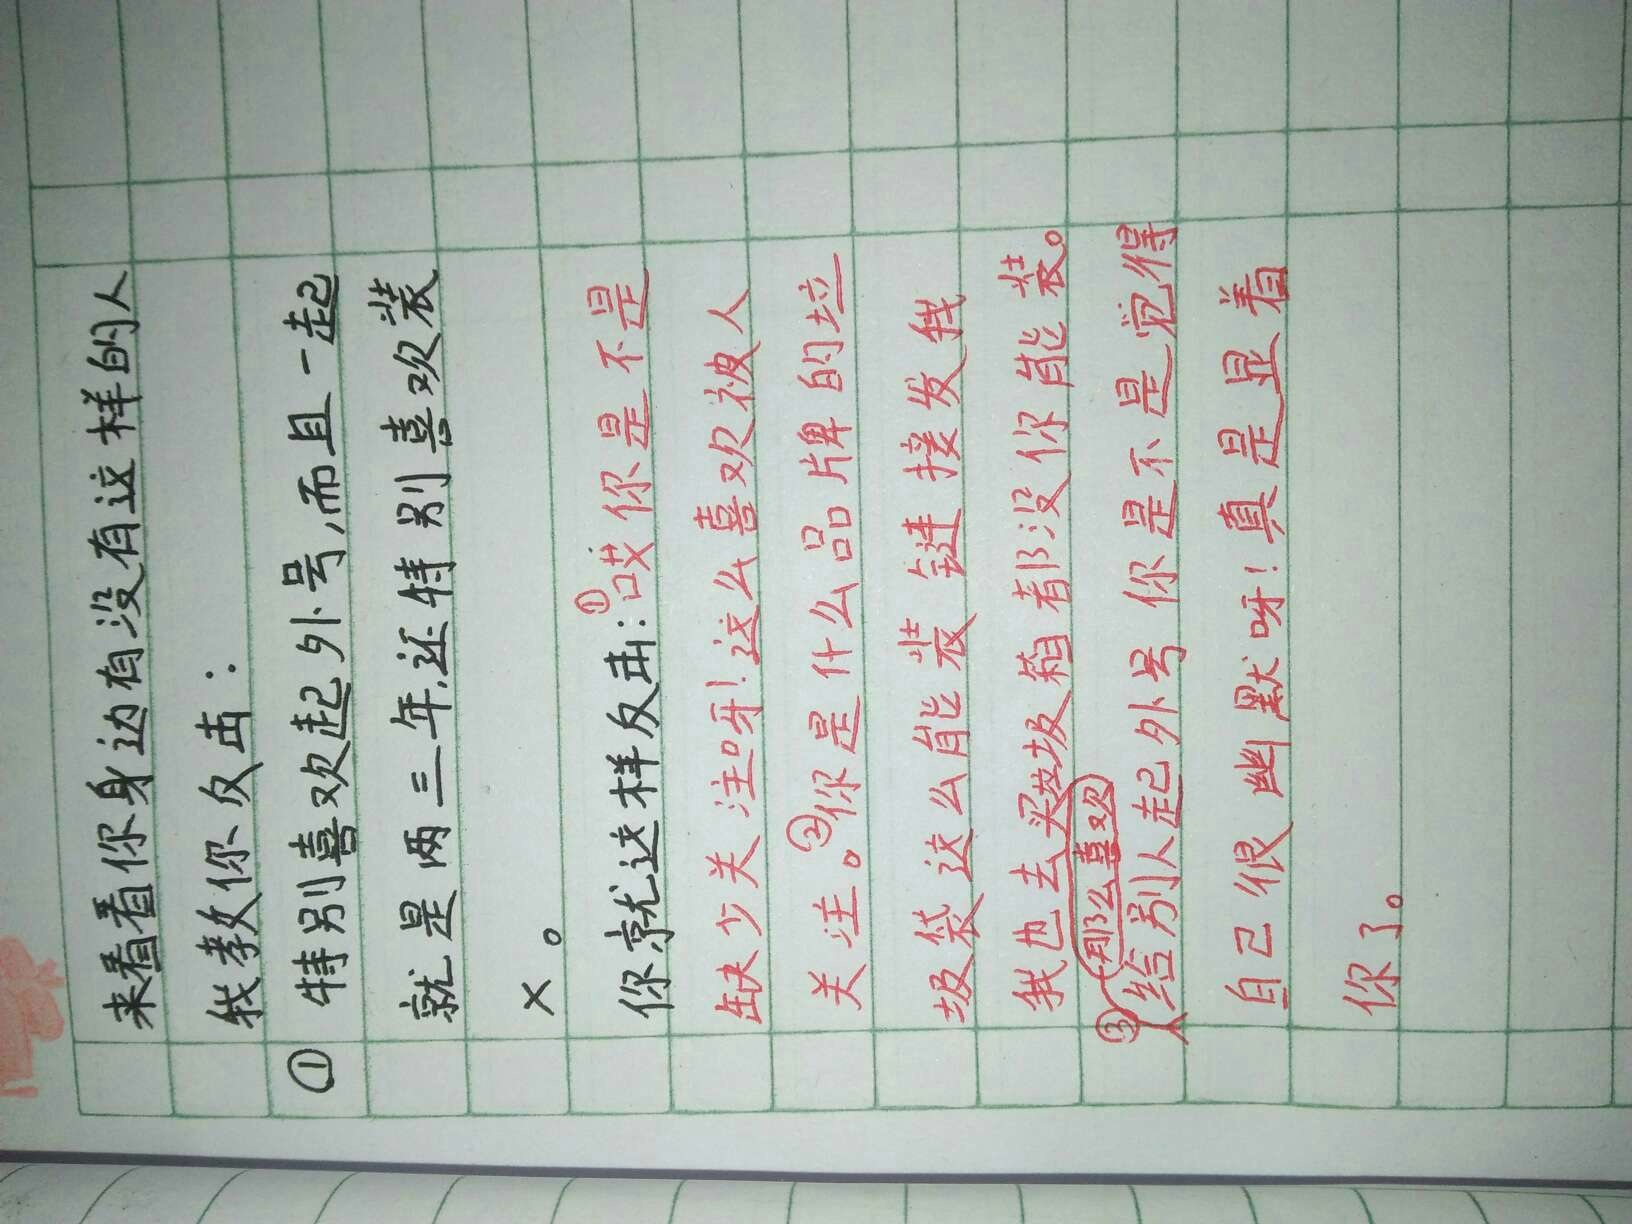 来看看你身边有没有这样的人
我教你反击：
①特别喜欢起外号,而且一起
就是两三年,还特别喜欢装
×。
你就这样反击:①哎你是不是
缺少关注呀!这么喜欢被人
关注。②你是什么品牌的垃
圾袋这么能装 链接发我
我也去买垃圾箱都没你能装。
③那么喜欢
给别人起外号 你是不是觉得
自己很幽默呀!真是显着
你了。